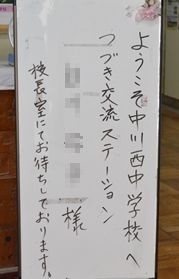 ようこそ中川西中学校へ
つづき交流ステーション
様
校長室にてお待ちしております。